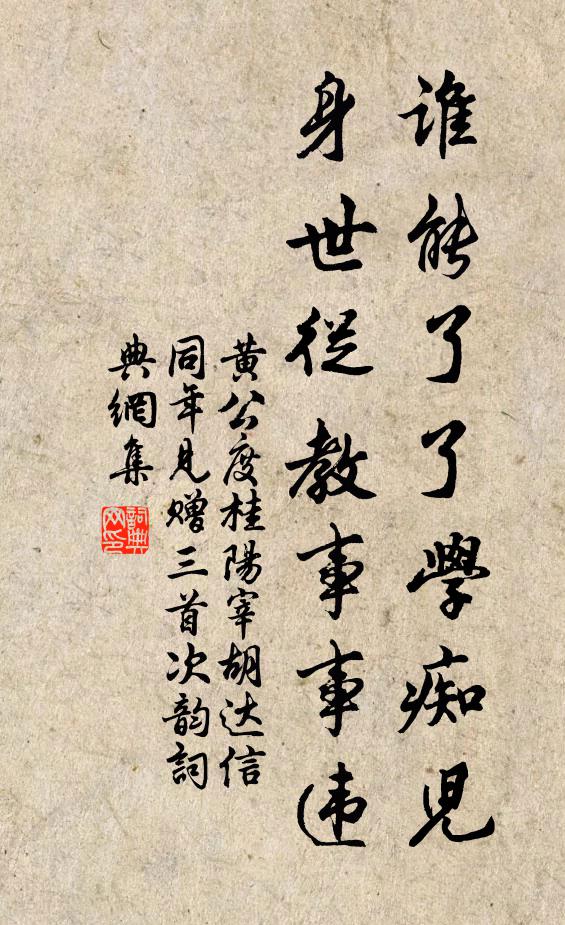 誰能了了學痴児
身世從教事事违
黄公度桂陽宰胡达信
同年見赠三首次韵詞
典網集